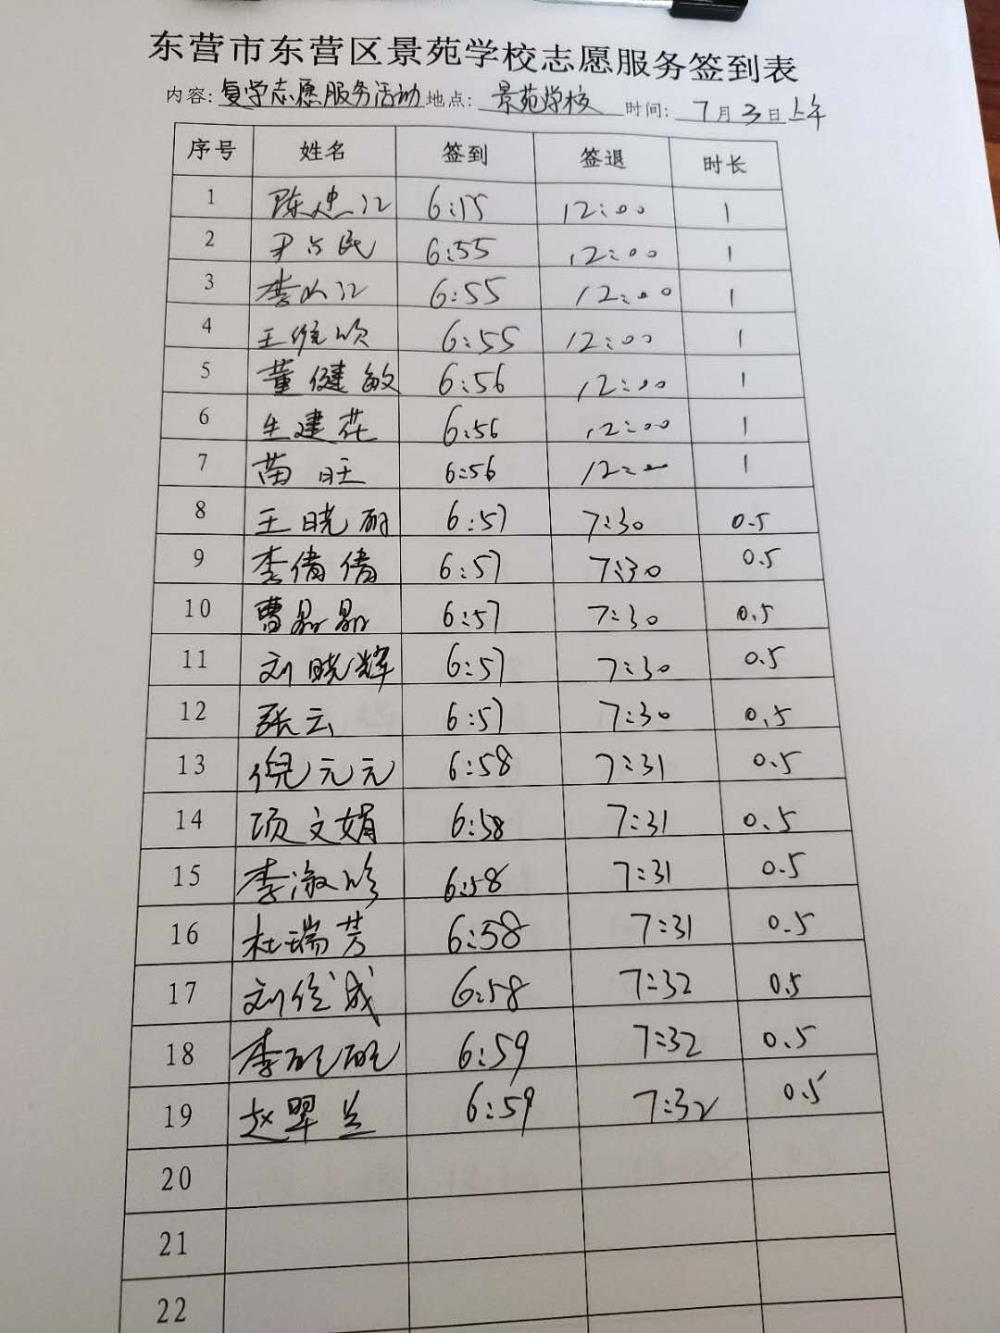 东营市东营区景苑学校志愿服务签到表
内容: 复学志愿服务活动 地点: 景苑学校 时间: 7月3日上午
序号 姓名 签到 签退 时长
1 陈建江 6:15 12:00 1
2 尹占民 6:55 12:00 1
3 李江 6:55 12:00 1
4 王维欣 6:55 12:00 1
5 董健敏 6:56 12:00 1
6 生建花 6:56 12:00 1
7 苗旺 6:56 12:00 1
8 王晓丽 6:57 7:30 0.5
9 李倩倩 6:57 7:30 0.5
10 曹磊磊 6:57 7:30 0.5
11 刘晓辉 6:57 7:30 0.5
12 张云 6:57 7:30 0.5
13 倪元元 6:58 7:31 0.5
14 项文娟 6:58 7:31 0.5
15 李淑 6:58 7:31 0.5
16 杜瑞芳 6:58 7:31 0.5
17 刘俭成 6:58 7:32 0.5
18 李丽丽 6:59 7:32 0.5
19 赵翠兰 6:59 7:32 0.5
20
21
22